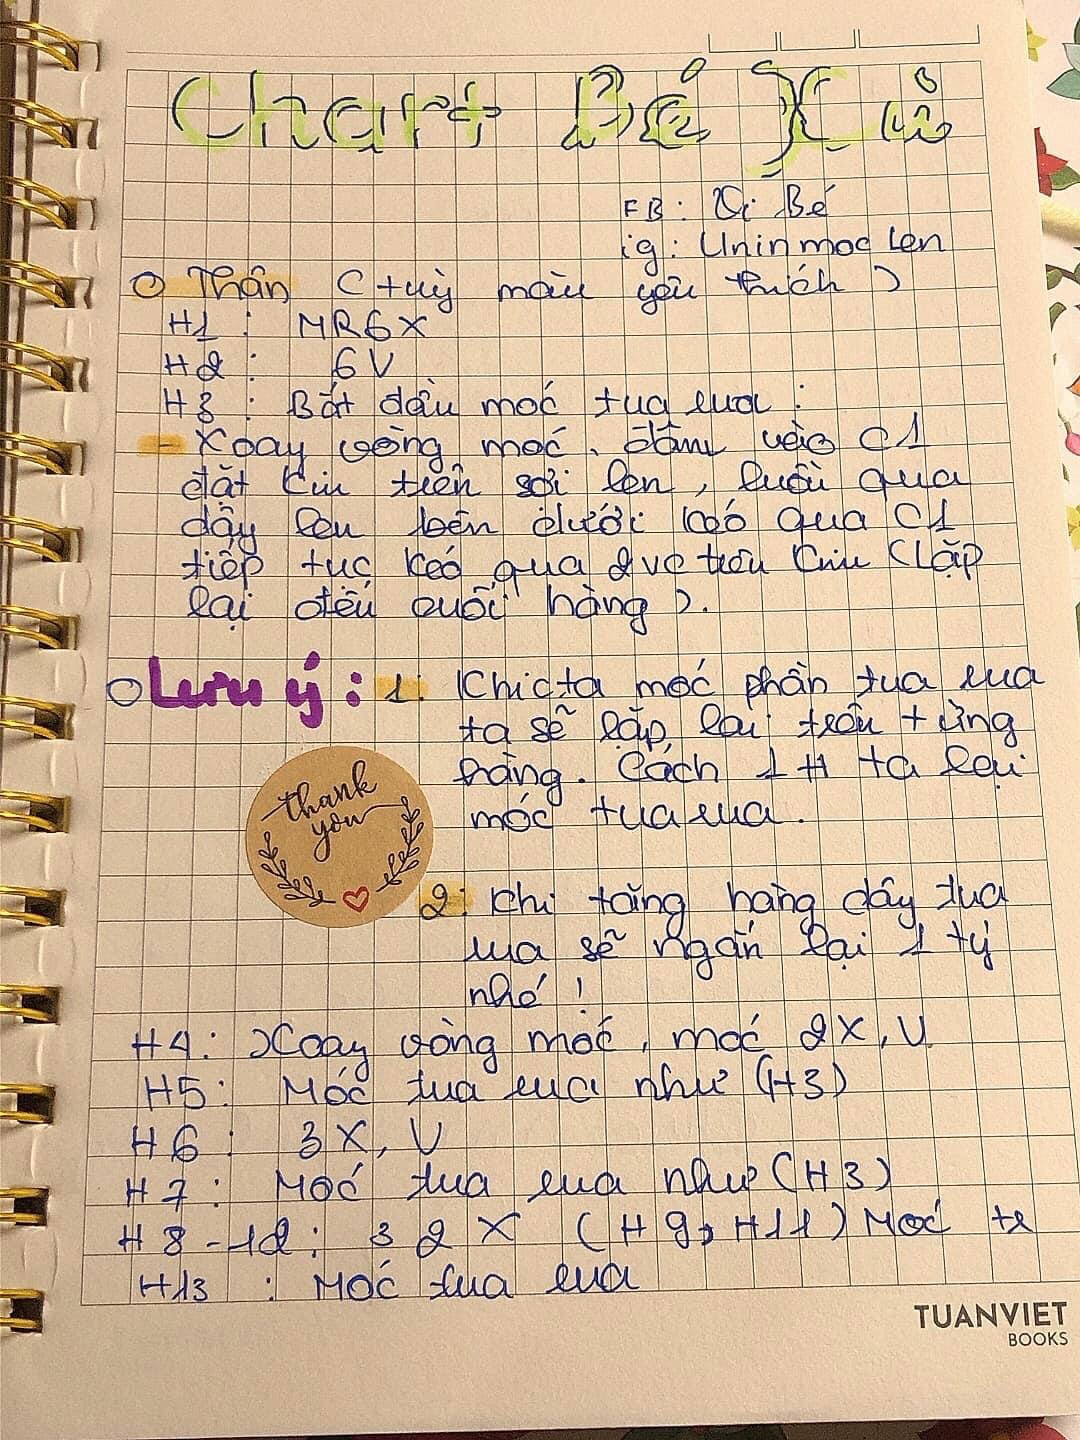 Chart Bé Xù
FB: Di Bé
ig: Uninmoclen
O Thân (tuỳ màu yêu thích)
H1 : MR6X
H2 : 6V
H3 : Bắt đầu móc tua rua :
- Xoay vòng móc, đâm vào C1
đặt kim trên sợi len, luồn qua
dây len bên dưới kéo qua C1
tiếp tục kéo qua 2 vc trên kim (lặp
lại đến cuối hàng).
O Lưu ý : 1: Khi ta móc phần tua rua
ta sẽ lặp lại trên từng
hàng. Cách 1H ta lại
móc tua rua.
thank
you
2: Khi tăng hàng dây tua
rua sẽ ngắn lại 1 tý
nhé !
H4: Xoay vòng móc, móc 2X, V
H5: Móc tua rua như (H3)
H6 : 3X, V
H7 : Móc tua rua như (H3)
H8-12: 32X (H9, H11) Móc tr
H13 : Móc tua rua
TUANVIET
BOOKS